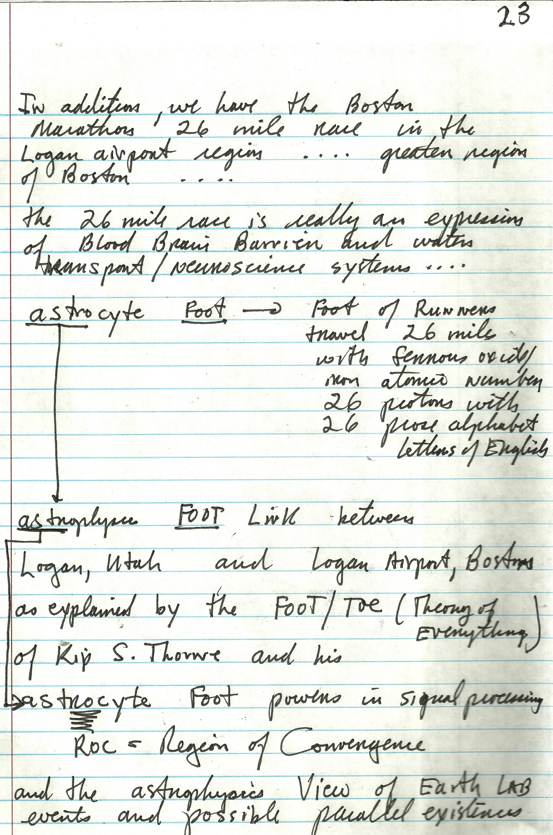 23
In addition, we have the Boston
Marathon, 26 mile race in the
Logan airport region .... greater region
of Boston ....
the 26 mile race is really an expression
of Blood Brain Barrier and water
transport/neuroscience systems ....
astrocyte Foot → Foot of Runners
travel 26 mile
with ferrous oxide/
iron atomic number
26 protons with
26 prose alphabet
letters of English
astrophysics FOOT Link between
Logan, Utah and Logan Airport, Boston
as explained by the FOOT/TOE (Theory of
Everything)
of Kip S. Thorne and his
astrocyte Foot powers in signal processing
ROC = Region of Convergence
and the astrophysics View of Earth LAB
events and possible parallel existences